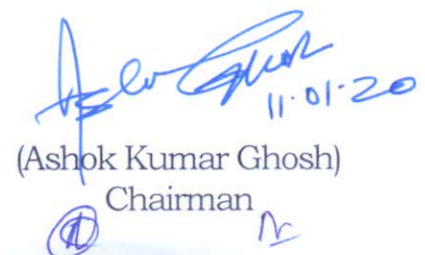 Ashok Ghosh
11.01.20
(Ashok Kumar Ghosh)
Chairman